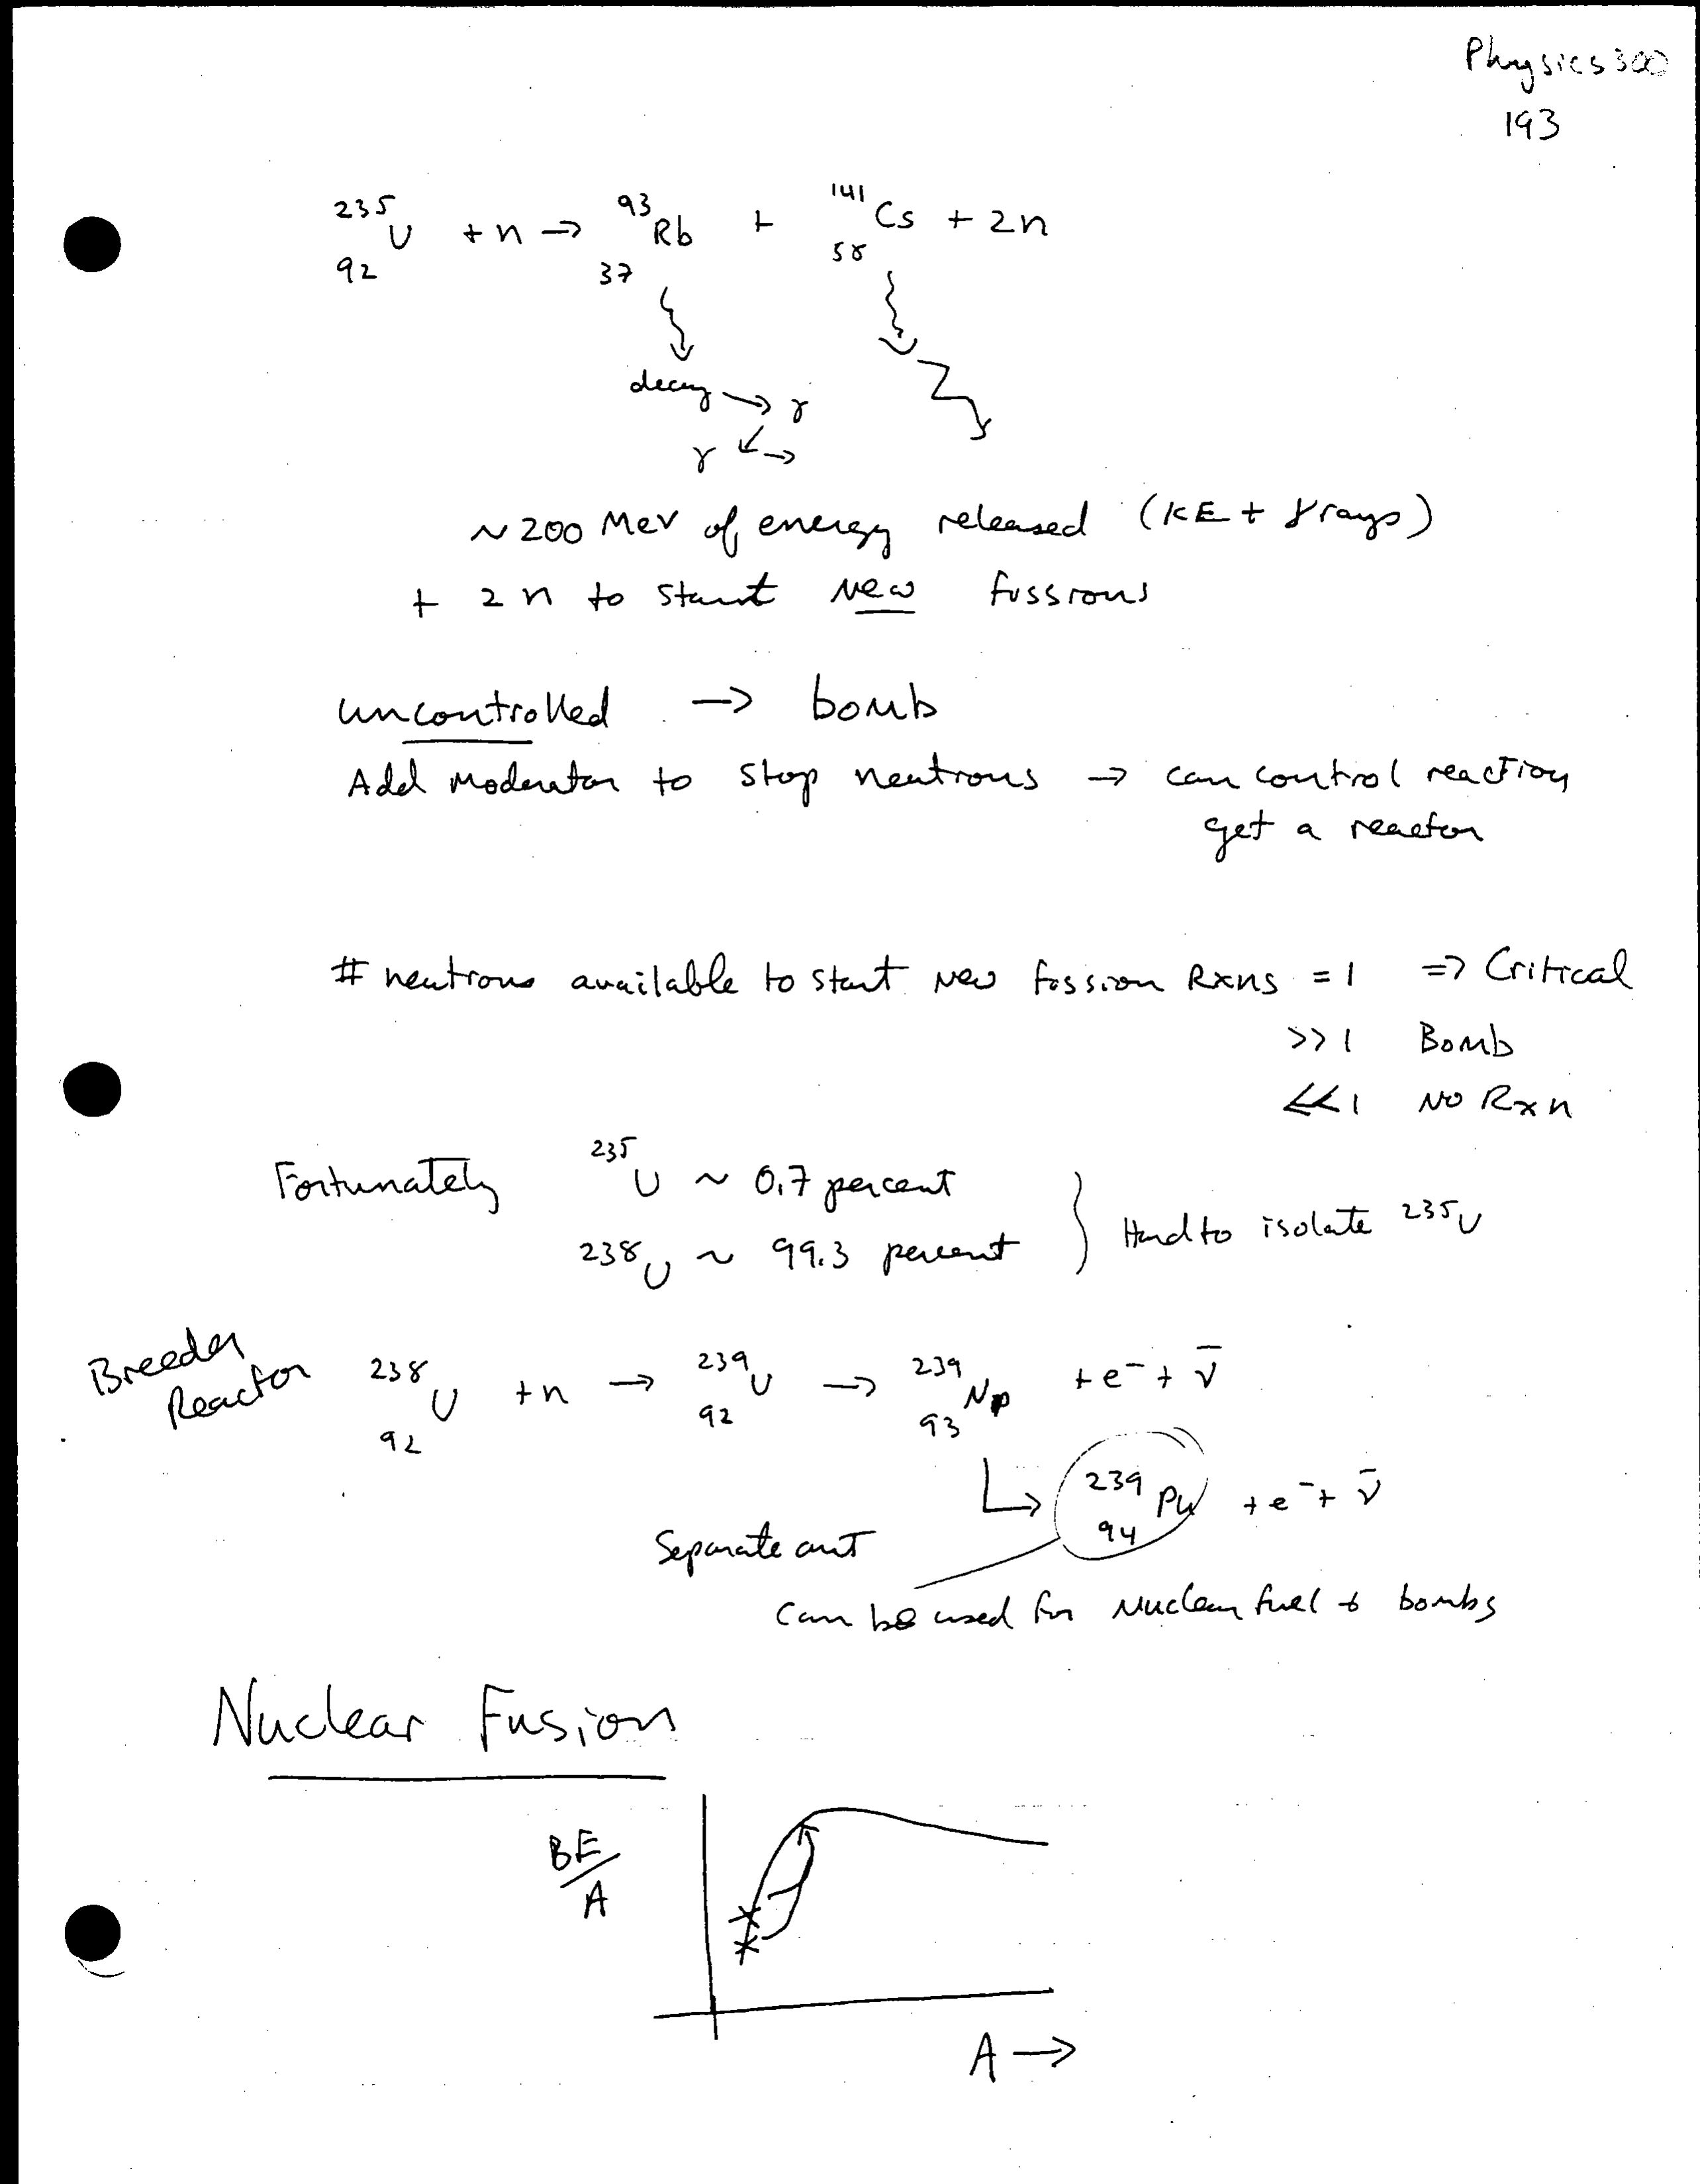 Physics 300
193
²³⁵₉₂U + n → ⁹³₃₇Rb + ¹⁴¹₅₈Cs + 2n
decay → γ
γ ↙→
~ 200 MeV of energy released (KE + γ rays)
+ 2 n to start new fissions
uncontrolled → bomb
Add moderator to stop neutrons → can control reaction
get a reactor
# neutrons available to start new fission Rxns = 1 ⇒ Critical
>> 1 Bomb
<< 1 No Rxn
Fortunately ²³⁵U ~ 0.7 percent
²³⁸U ~ 99.3 percent } Hard to isolate ²³⁵U
Breeder
Reactor ²³⁸₉₂U + n → ²³⁹₉₂U → ²³⁹₉₃Np + e⁻ + ν̄
↳ ²³⁹₉₄Pu + e⁻ + ν̄
Separate out
can be used for nuclear fuel + bombs
Nuclear Fusion
BE/A
A →